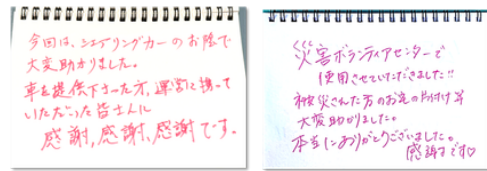 今回は、シェアリングカーのお陰で
大変助かりました。
車を提供下さった方、運営に携って
いただいた皆さんに
感謝,感謝、感謝です。
災害ボランティアセンターで
使用させていただきました!!
被災された方のお宅の片付け等
大変助かりました。
本当にありがとうございました。
感謝です♡